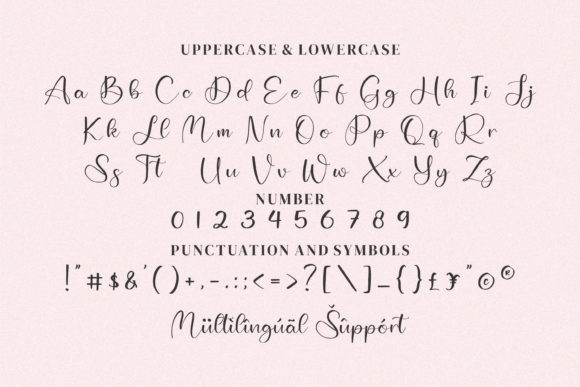 UPPERCASE & LOWERCASE
Aa Bb Cc Dd Ee Ff Gg Hh Ii Jj
Kk Ll Mm Nn Oo Pp Qq Rr
Ss Tt Uu Vv Ww Xx Yy Zz
NUMBER
0 1 2 3 4 5 6 7 8 9
PUNCTUATION AND SYMBOLS
! " # $ & ' ( ) + , - . : ; < = > ? [ \ ] _ { } £ ¥ " © ®
Mültilîngúãl Šûppórt